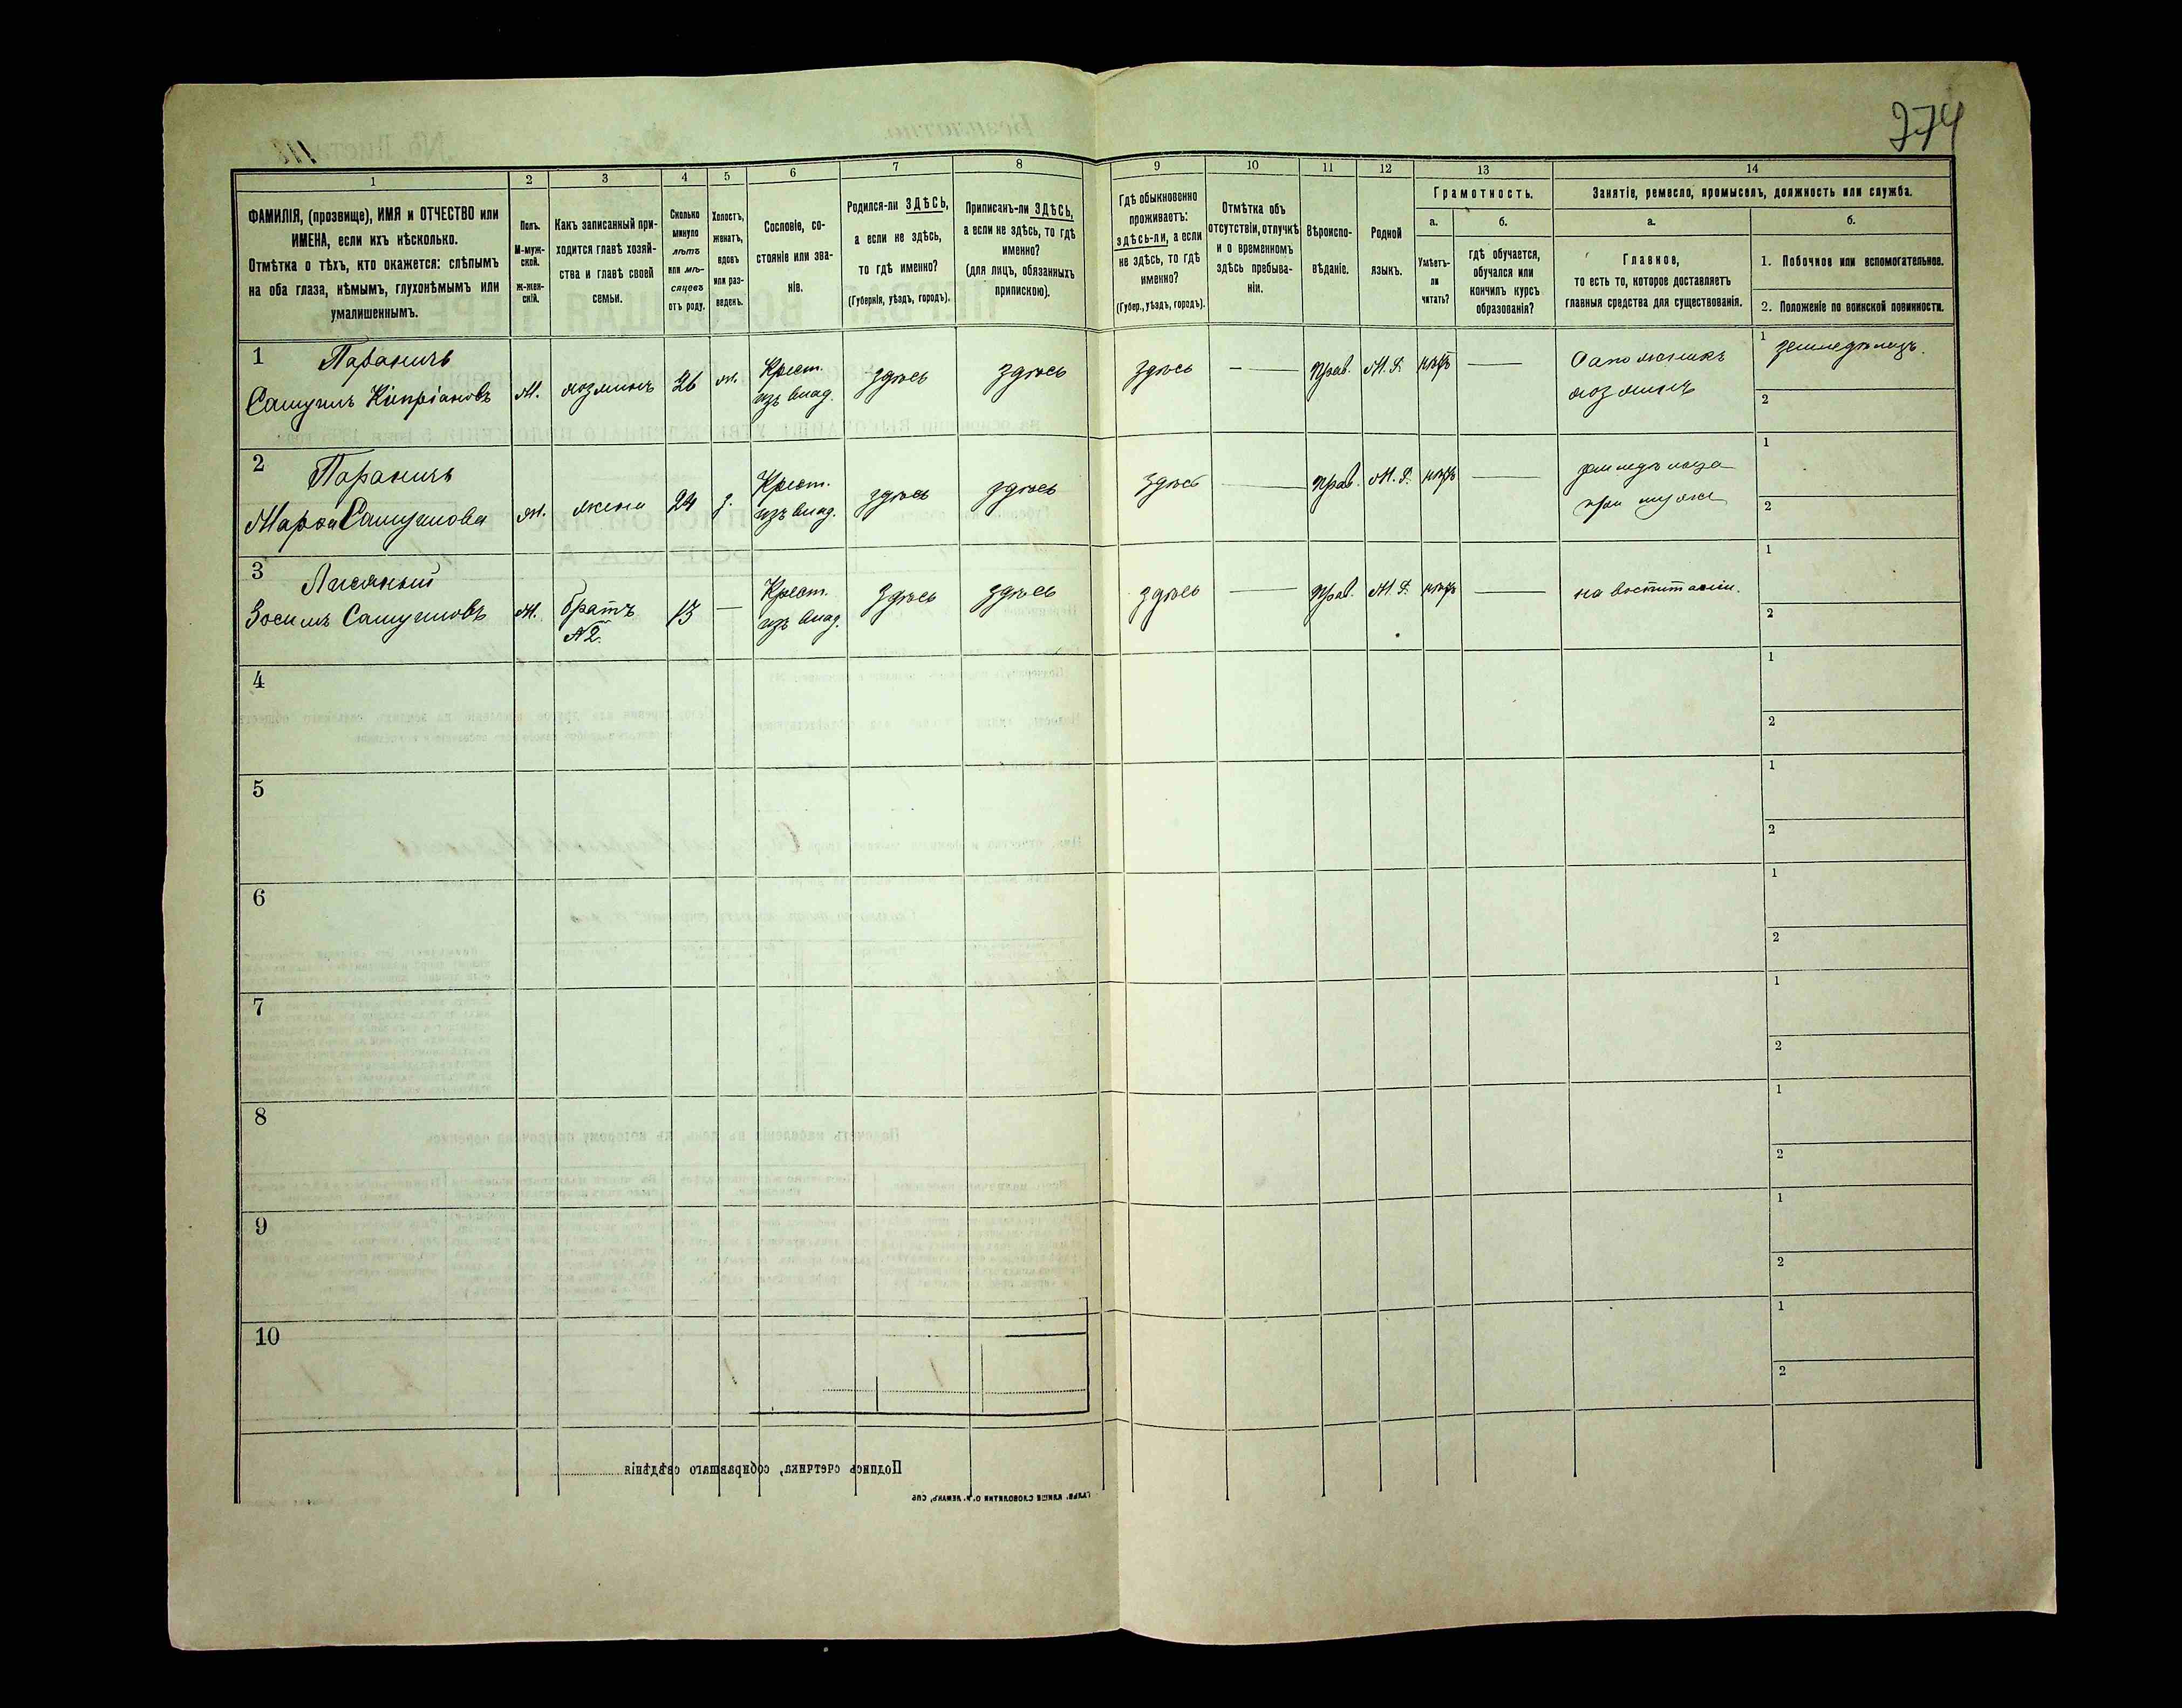 274
1
2
3
4
5
6
7
8
9
10
11
12
13
14
ФАМИЛІЯ, (прозвище), ИМЯ и ОТЧЕСТВО или
ИМЕНА, если ихъ нѣсколько.
Отмѣтка о тѣхъ, кто окажется: слѣпымъ
на оба глаза, нѣмымъ, глухонѣмымъ или
умалишеннымъ.
Полъ.
М-муж-
ской.
ж-жен-
скій.
Какъ записанный при-
ходится главѣ хозяй-
ства и главѣ своей
семьи.
Сколько
минуло
лѣтъ
или мѣ-
сяцевъ
отъ роду.
Холостъ,
женатъ,
вдовъ
или раз-
веденъ.
Сословіе, со-
стояніе или зва-
ніе.
Родился-ли ЗДѢСЬ,
а если не здѣсь,
то гдѣ именно?
(Губернія, уѣздъ, городъ).
Приписанъ-ли ЗДѢСЬ,
а если не здѣсь, то гдѣ
именно?
(для лицъ, обязанныхъ
припискою).
Гдѣ обыкновенно
проживаетъ:
здѣсь-ли, а если
не здѣсь, то гдѣ
именно?
(Губер., уѣздъ, городъ).
Отмѣтка объ
отсутствіи, отлучкѣ
и о временномъ
здѣсь пребыва-
ніи.
Вѣроиспо-
вѣданіе.
Родной
языкъ.
Грамотность.
а.
Умѣетъ-
ли
читать?
б.
гдѣ обучается,
обучался или
кончилъ курсъ
образованія?
Занятіе, ремесло, промыселъ, должность или служба.
а.
Главное,
то есть то, которое доставляетъ
главныя средства для существованія.
б.
1. Побочное или вспомогательное.
2. Положеніе по воинской повинности.
1
Параничъ
Самуилъ Кипріановъ
М.
хозяинъ
26
ж.
Крест.
изъ влад.
здѣсь
здѣсь
здѣсь
—
Прав.
М. Р.
нѣтъ
—
Сапожникъ
хозяинъ
1 земледѣлецъ.
2
2
Параничъ
Марфа Самуилова
ж.
жена
24
з.
Крест.
изъ влад.
здѣсь
здѣсь
здѣсь
—
Прав.
М. Р.
нѣтъ
—
при мужѣ
1
2
3
Зосимъ Самуиловъ
М.
братъ
№ 2.
13
—
Крест.
изъ влад.
здѣсь
здѣсь
здѣсь
—
Прав.
М. Р.
нѣтъ
—
на воспитаніи.
1
2
4
1
2
5
1
2
6
1
2
7
1
2
8
1
2
9
1
2
10
1
2
Подпись счетчика, собиравшаго свѣдѣнія